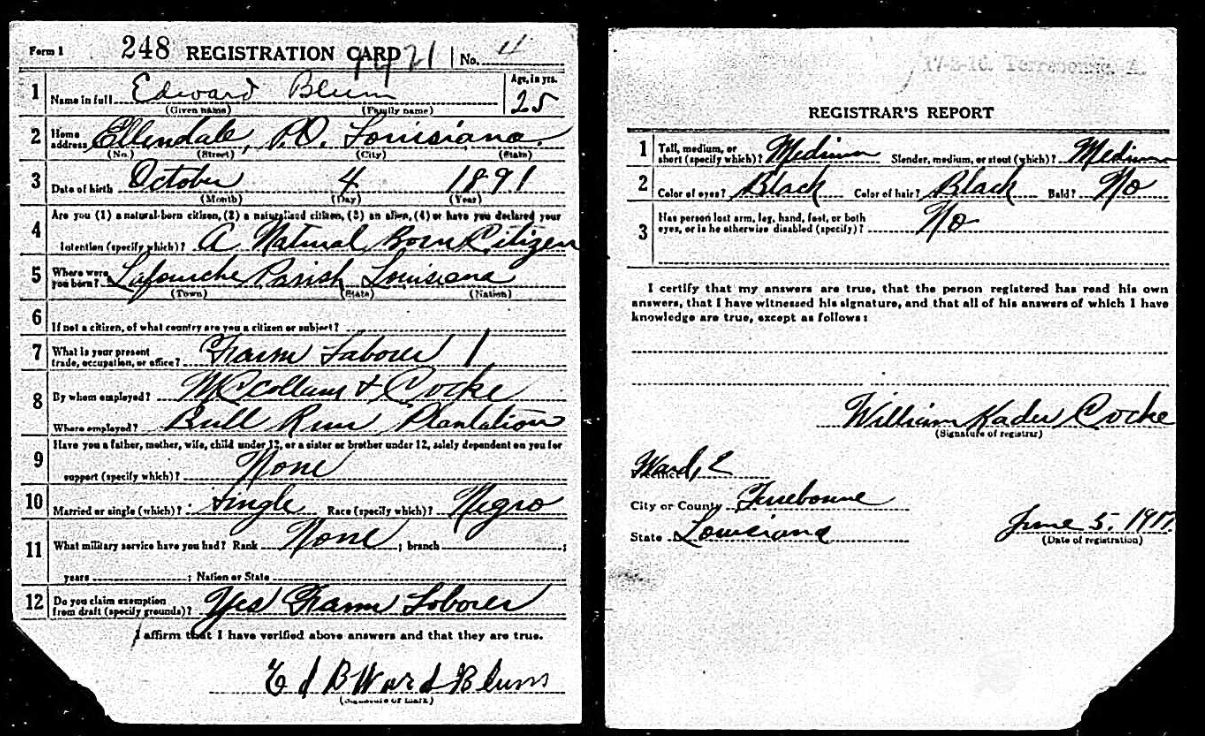 Form 1 248 REGISTRATION CARD 21 No. 4
1 Name in full Edward Blum Age, in yrs. 25
(Given name) (Family name)
2 Home address Ellendale, P.O. Louisiana
(No.) (Street) (City) (State)
3 Date of birth October 4 1891
(Month) (Day) (Year)
4 Are you (1) a natural-born citizen, (2) a naturalized citizen, (3) an alien, (4) or have you declared your
intention (specify which)? A Natural Born Citizen
5 Where were you born? Lafourche Parish Louisiana
(Town) (State) (Nation)
6 If not a citizen, of what country are you a citizen or subject?
7 What is your present trade, occupation, or office? Farm Laborer 1
8 By whom employed? McCollum & Cocke
Where employed? Bull Run Plantation
9 Have you a father, mother, wife, child under 12, or a sister or brother under 12, solely dependent on you for
support (specify which)? None
10 Married or single (which)? Single Race (specify which)? Negro
11 What military service have you had? Rank None ; branch ;
years ; Nation or State
12 Do you claim exemption from draft (specify grounds)? Yes Farm Laborer
I affirm that I have verified above answers and that they are true.
EdBWard Blum
(Signature or mark)
17-3-10. Terrebonne, A.
REGISTRAR'S REPORT
1 Tall, medium, or short (specify which)? Medium Slender, medium, or stout (which)? Medium
2 Color of eyes? Black Color of hair? Black Bald? No
3 Has person lost arm, leg, hand, foot, or both
eyes, or is he otherwise disabled (specify)? No
I certify that my answers are true, that the person registered has read his own
answers, that I have witnessed his signature, and that all of his answers of which I have
knowledge are true, except as follows:
William Kader Cocke
(Signature of registrar)
Precinct Ward, 2
City or County Terrebonne
State Louisiana June 5. 1917
(Date of registration)